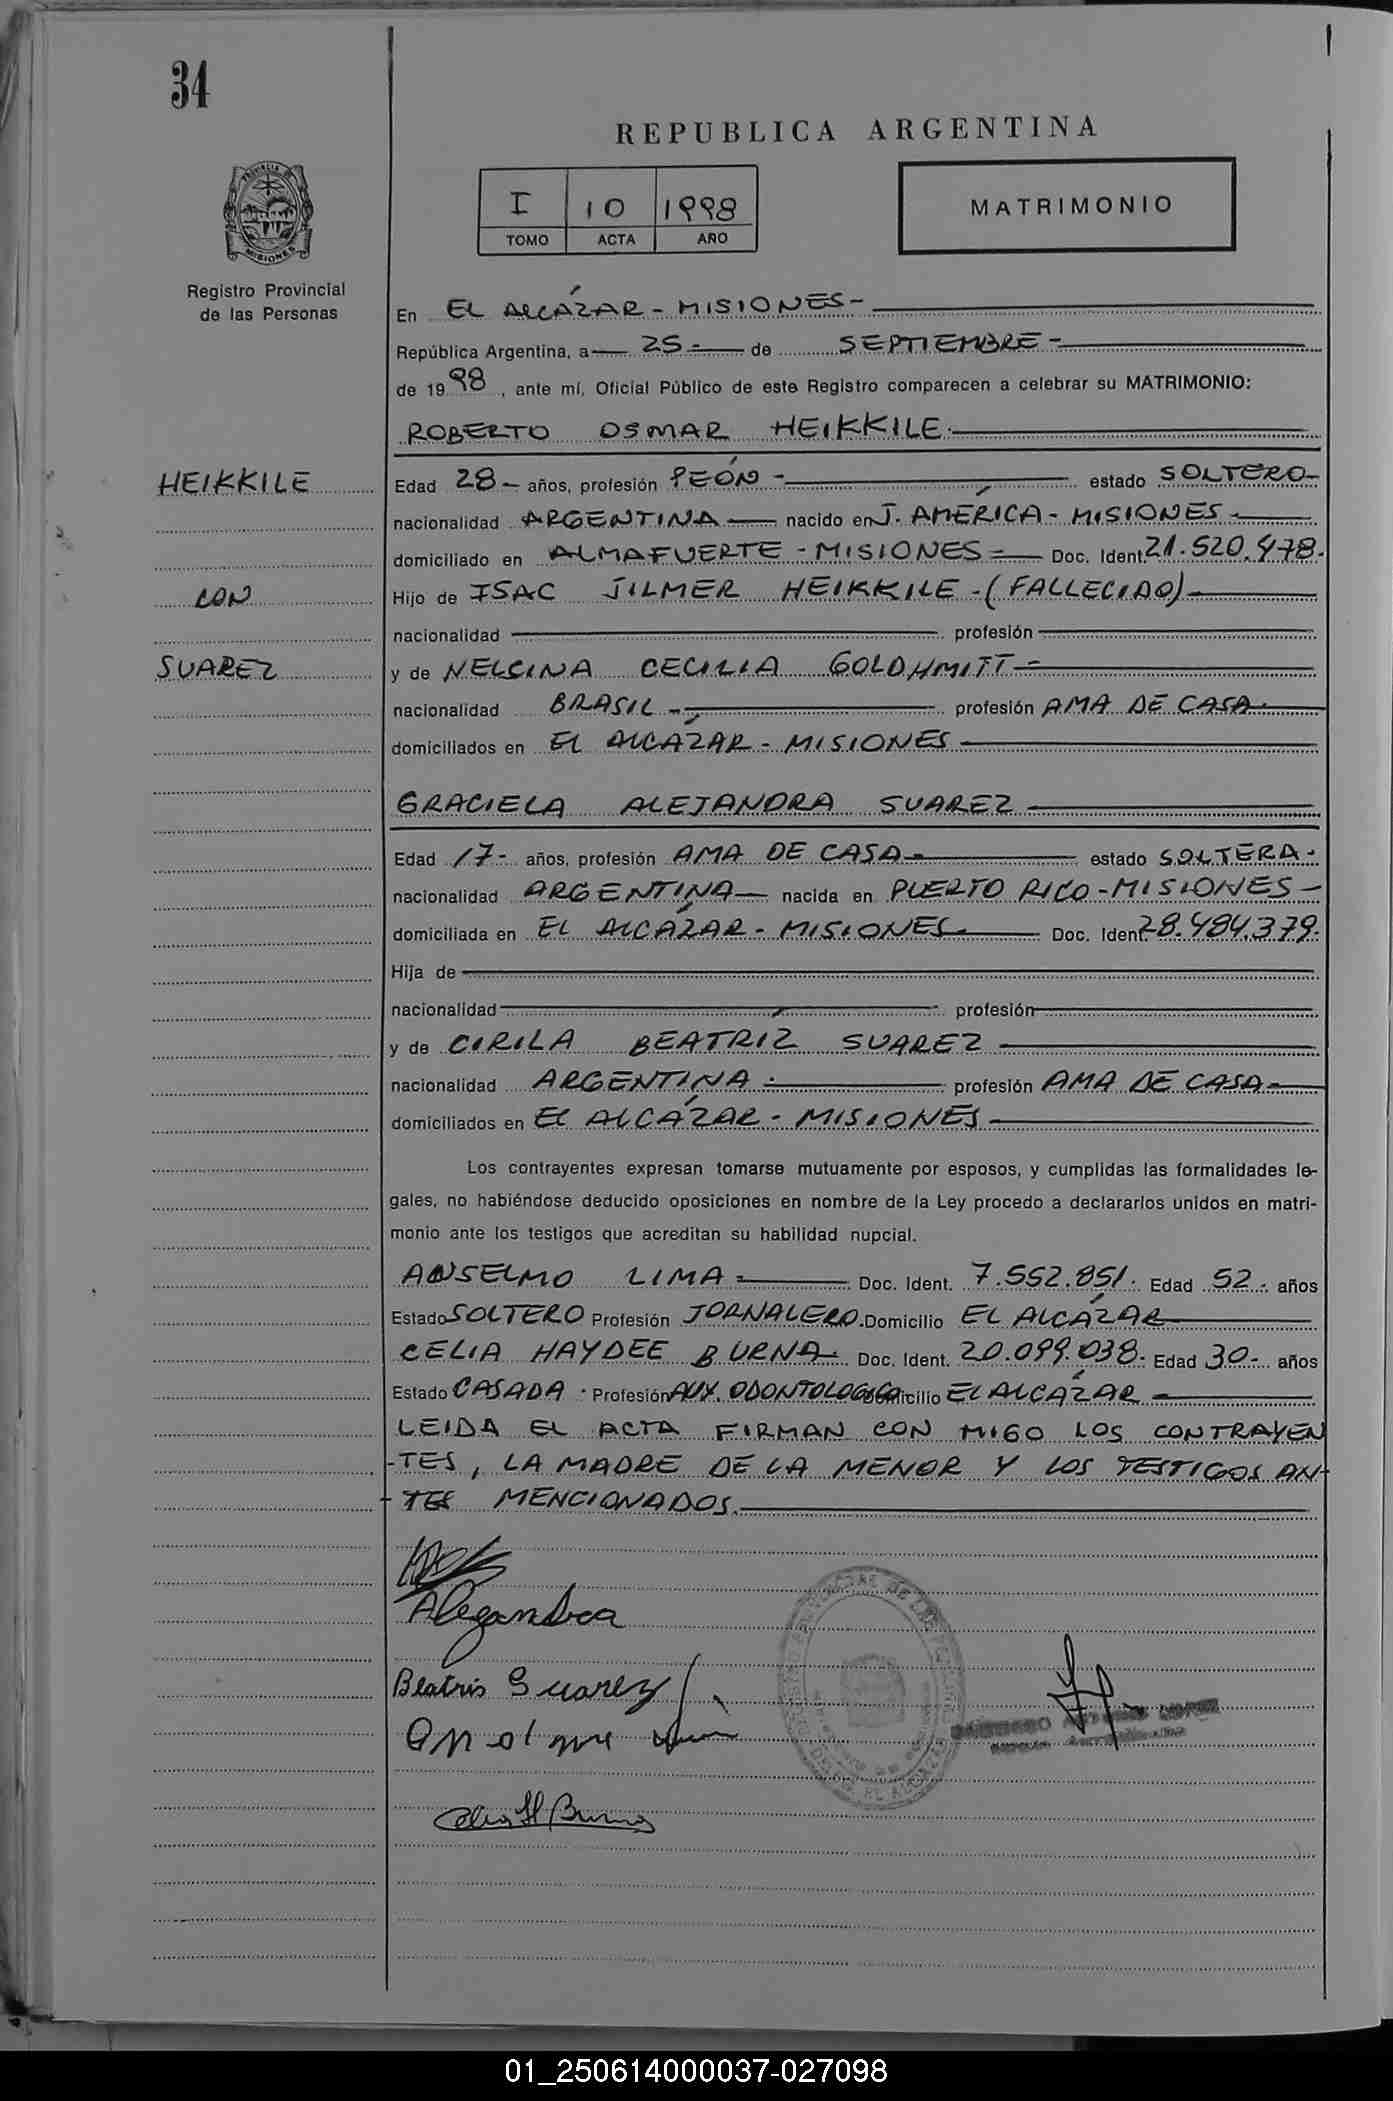 34
REPUBLICA ARGENTINA
I 10 1998
TOMO ACTA AÑO
MATRIMONIO
PROVINCIA DE MISIONES
Registro Provincial
de las Personas
En EL ALCÁZAR - MISIONES -
República Argentina, a 25 - de SEPTIEMBRE -
de 1998, ante mí, Oficial Público de este Registro comparecen a celebrar su MATRIMONIO:
ROBERTO OSMAR HEIKKILE.
HEIKKILE
Edad 28 - años, profesión PEÓN - estado SOLTERO -
nacionalidad ARGENTINA nacido en J. AMÉRICA - MISIONES -
domiciliado en ALMAFUERTE - MISIONES - Doc. Ident. 21.520.478.
CON
Hijo de ISAC JILMER HEIKKILE - (FALLECIDO)
nacionalidad profesión
SUAREZ
y de NELCINA CECILIA GOLDHMITT -
nacionalidad BRASIL - profesión AMA DE CASA.
domiciliados en EL ALCÁZAR - MISIONES
GRACIELA ALEJANDRA SUAREZ
Edad 17 - años, profesión AMA DE CASA - estado SOLTERA.
nacionalidad ARGENTINA nacida en PUERTO RICO - MISIONES -
domiciliada en EL ALCÁZAR - MISIONES - Doc. Ident. 28.484.379.
Hija de
nacionalidad profesión
y de CIRILA BEATRÍZ SUAREZ
nacionalidad ARGENTINA. profesión AMA DE CASA -
domiciliados en EL ALCÁZAR - MISIONES
Los contrayentes expresan tomarse mutuamente por esposos, y cumplidas las formalidades le-
gales, no habiéndose deducido oposiciones en nombre de la Ley procedo a declararlos unidos en matri-
monio ante los testigos que acreditan su habilidad nupcial.
ANSELMO LIMA - Doc. Ident. 7.552.851. Edad 52 - años
Estado SOLTERO Profesión JORNALERO. Domicilio EL ALCÁZAR
CELIA HAYDEE BURNA. Doc. Ident. 20.099.038. Edad 30 - años
Estado CASADA. Profesión AUX. ODONTOLOGICA Domicilio EL ALCÁZAR -
LEIDA EL ACTA FIRMAN CON MIGO LOS CONTRAYEN
-TES, LA MADRE DE LA MENOR Y LOS TESTIGOS AN-
-TES MENCIONADOS.
Alegandra
Beatris Suarez
01_250614000037-027098